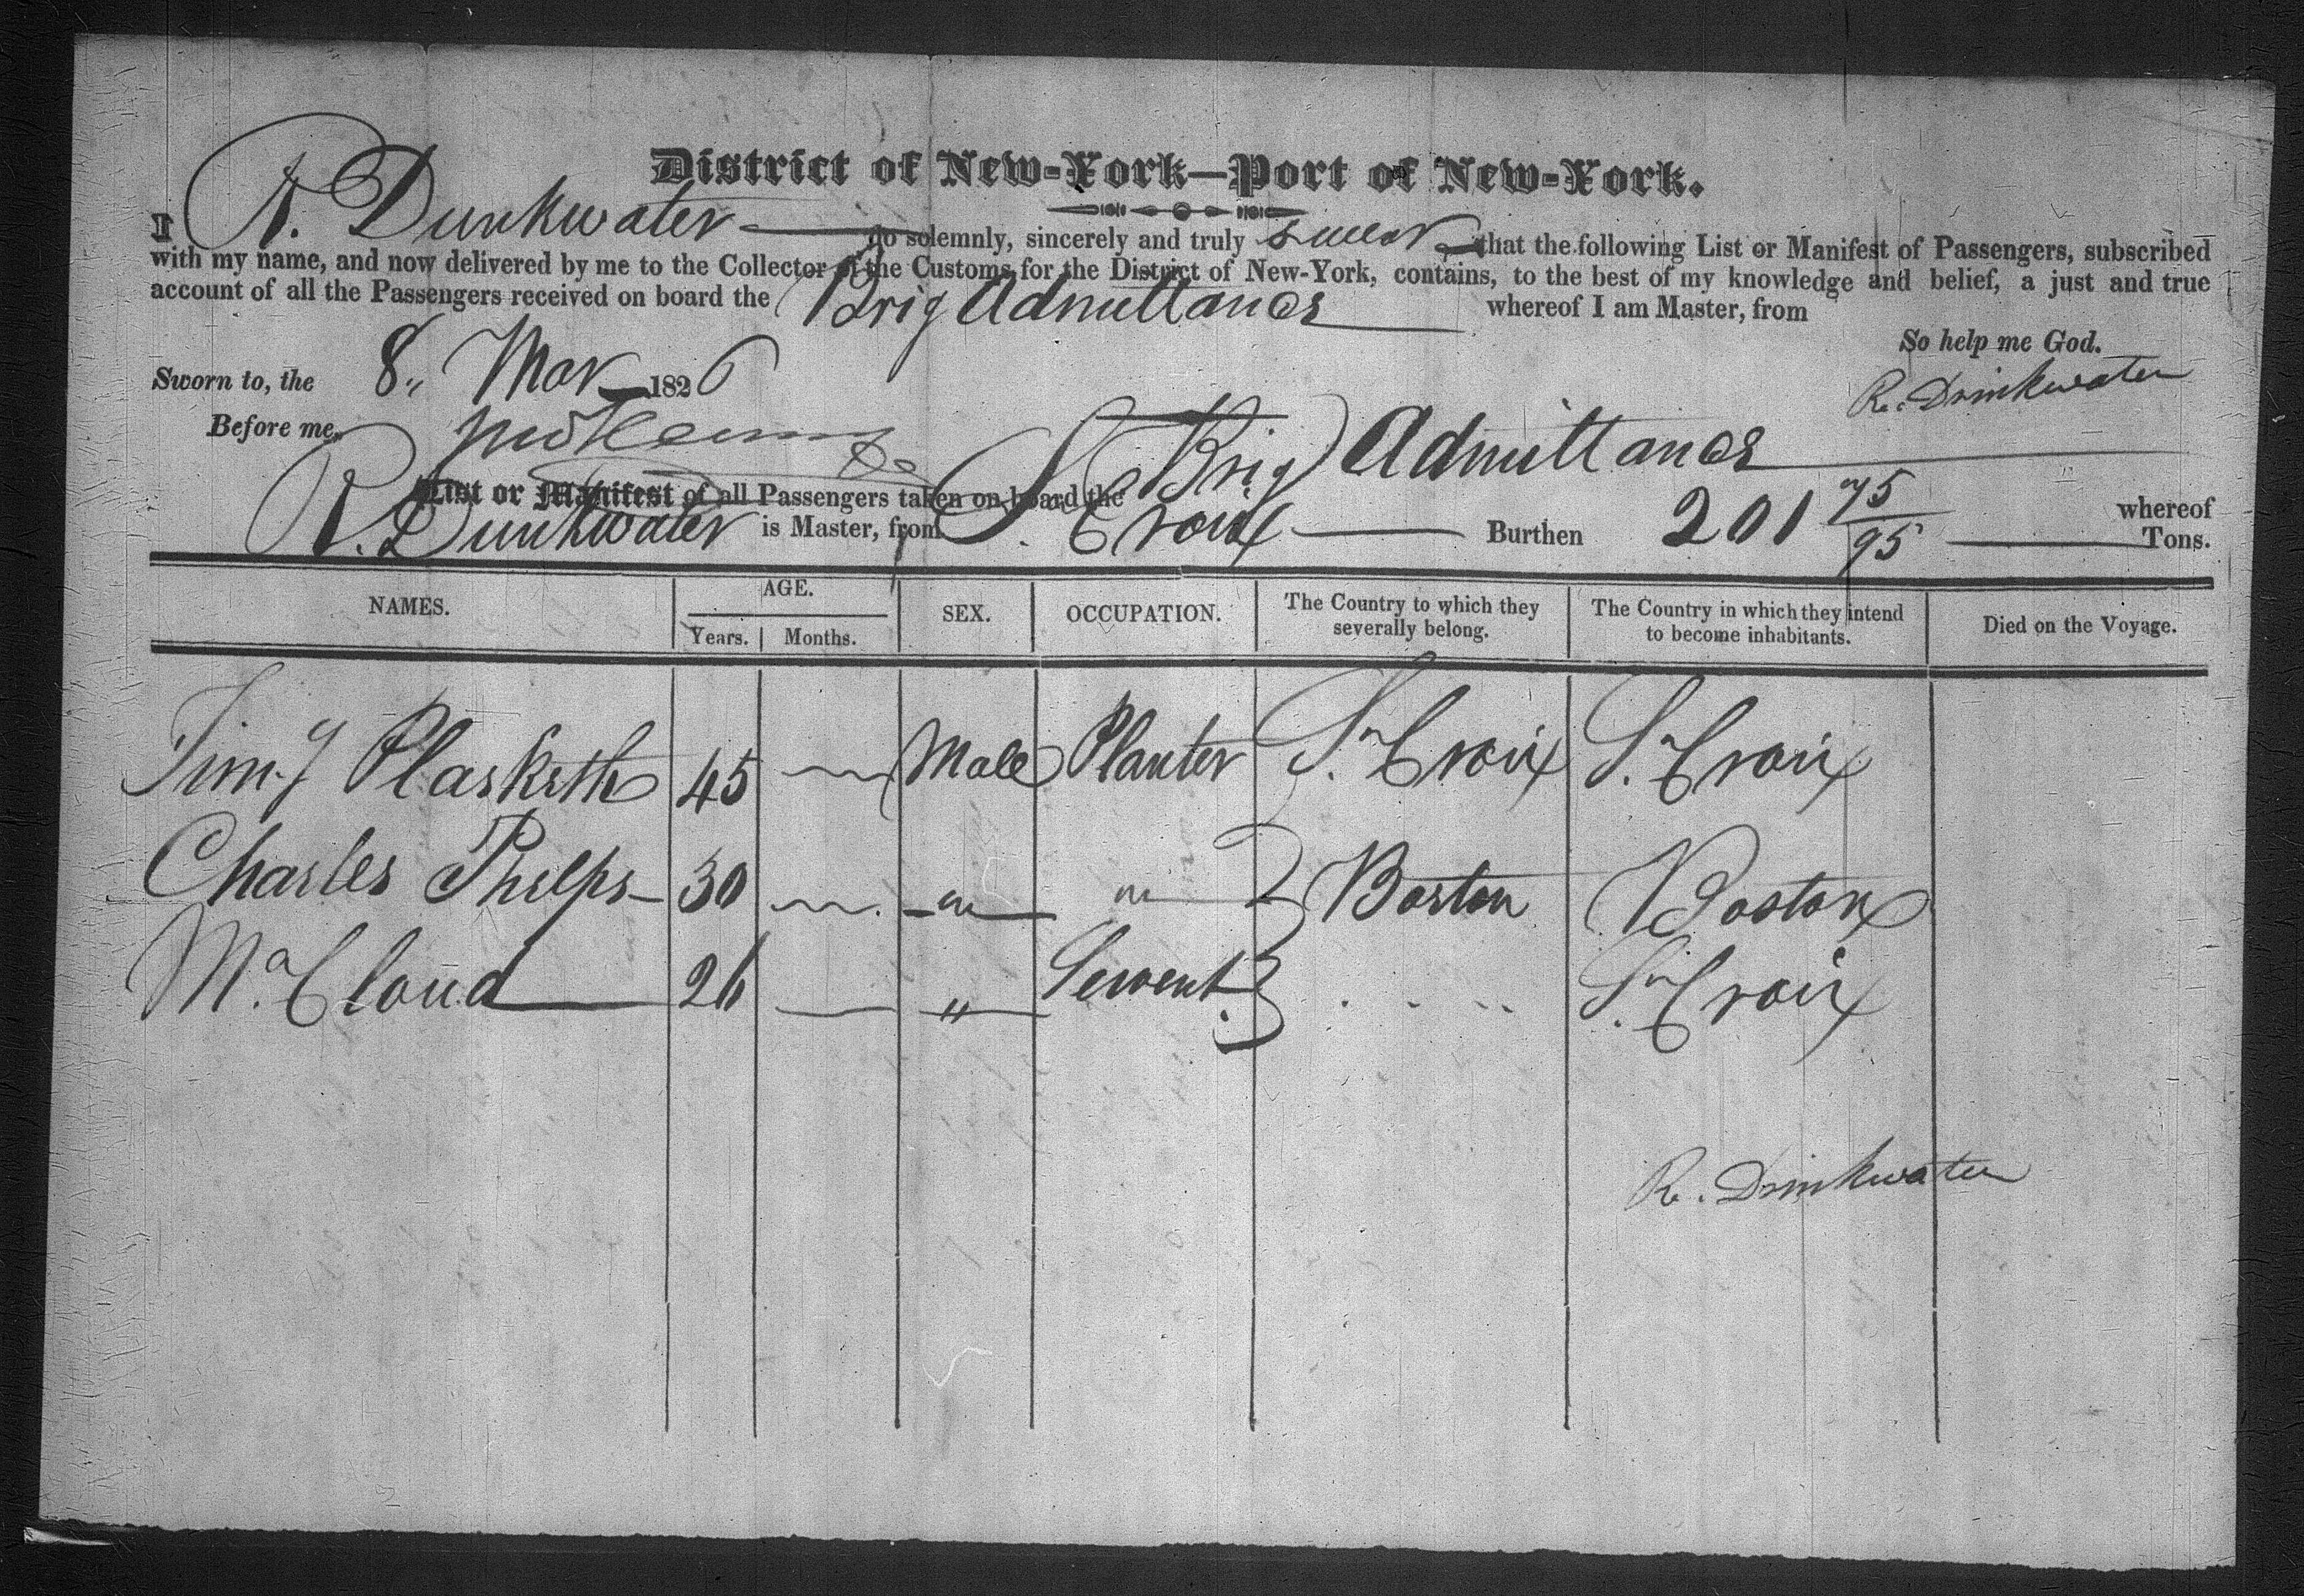 District of New-York—Port of New-York.
I R. Drinkwater do solemnly, sincerely and truly swear that the following List or Manifest of Passengers, subscribed
with my name, and now delivered by me to the Collector of the Customs for the District of New-York, contains, to the best of my knowledge and belief, a just and true
account of all the Passengers received on board the Brig Admittance whereof I am Master, from
So help me God.
Sworn to, the 8 Mar 1826
R. Drinkwater
Before me,
List or Manifest of all Passengers taken on board the Brig Admittance whereof
R. Drinkwater is Master, from St. Croix Burthen 201 75/95 Tons.
NAMES. AGE. SEX. OCCUPATION. The Country to which they severally belong. The Country in which they intend to become inhabitants. Died on the Voyage.
Years. Months.
Timy Plaskett 45 Male Planter St. Croix St. Croix
Charles Phelps 30 " " Boston Boston
McCloud 26 " Servent St. Croix
R. Drinkwater